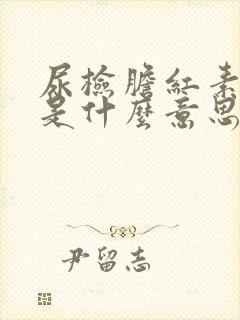 尿檢膽紅素
是什麼意思
尹留志